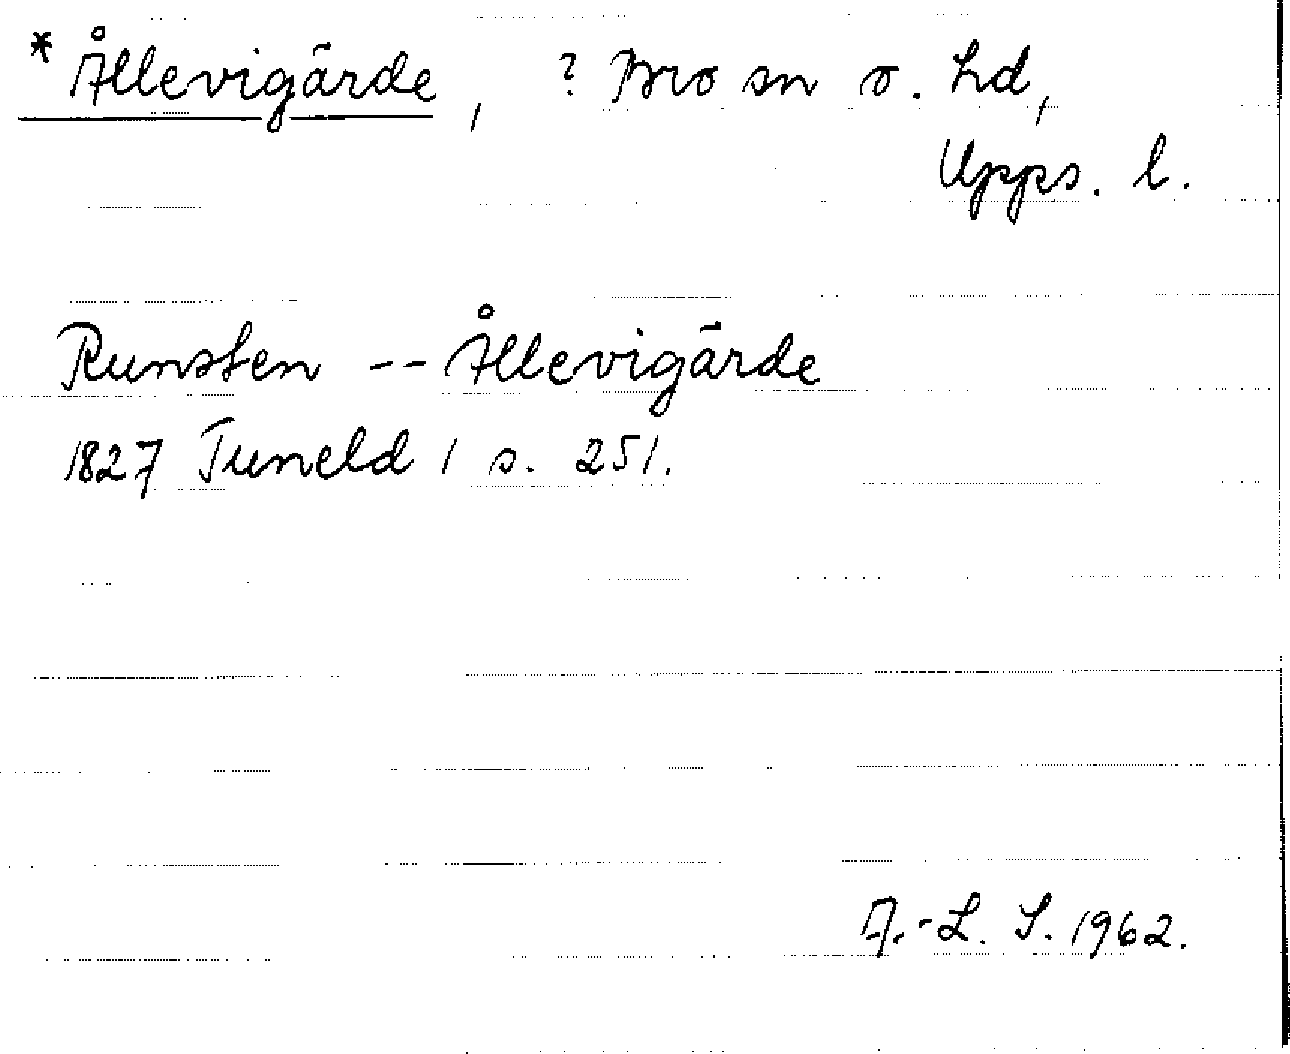 * Ållevigärde, ? Bro sn o. hd,
Upps. l.
Runsten -- Ållevigärde
1827 Tuneld 1 s. 251.
A.-L. S. 1962.